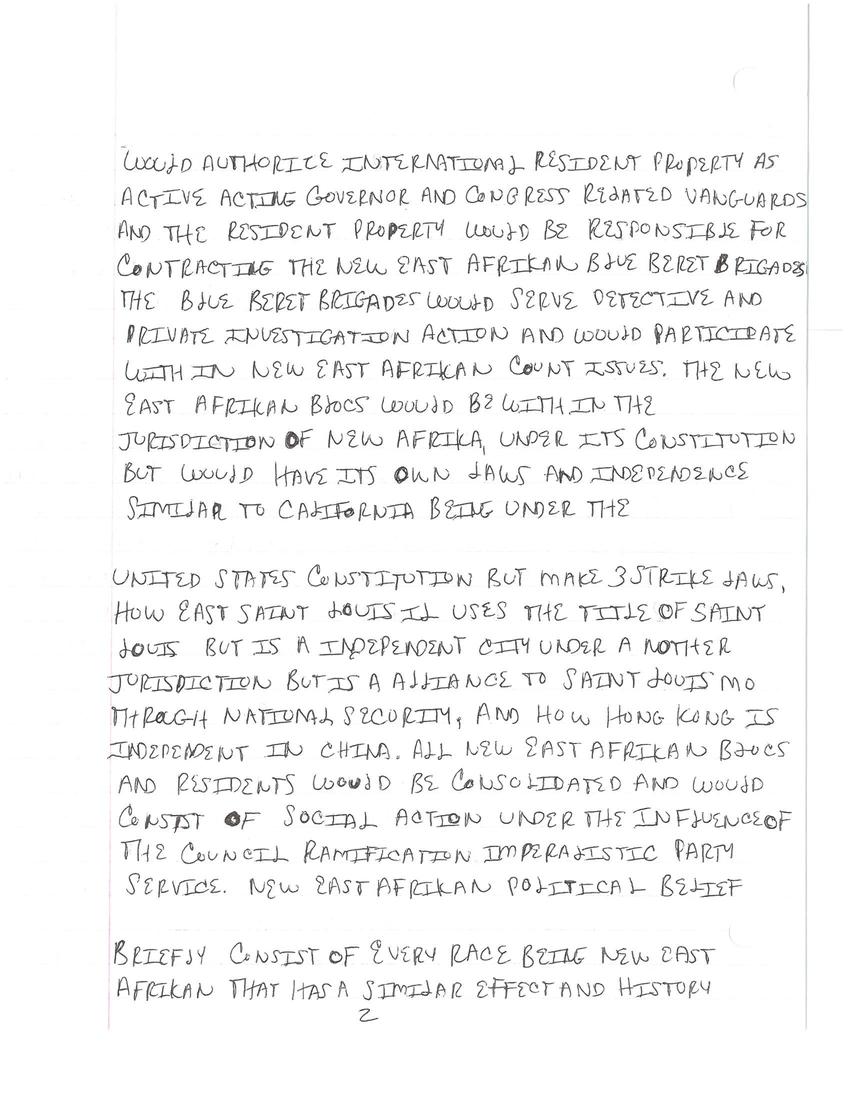 WOULD AUTHORIZE INTERNATIONAL RESIDENT PROPERTY AS
ACTIVE ACTING GOVERNOR AND CONGRESS RELATED VANGUARDS
AND THE RESIDENT PROPERTY WOULD BE RESPONSIBLE FOR
CONTRACTING THE NEW EAST AFRIKAN BLUE BERET BRIGADES
THE BLUE BERET BRIGADES WOULD SERVE DETECTIVE AND
PRIVATE INVESTIGATION ACTION AND WOULD PARTICIPATE
WITH IN NEW EAST AFRIKAN COUNT ISSUES. THE NEW
EAST AFRIKAN BLOCS WOULD BE WITH IN THE
JURISDICTION OF NEW AFRIKA, UNDER ITS CONSTITUTION
BUT WOULD HAVE ITS OWN LAWS AND INDEPENDENCE
SIMILAR TO CALIFORNIA BEING UNDER THE
UNITED STATES CONSTITUTION BUT MAKE 3 STRIKE LAWS,
HOW EAST SAINT LOUIS IL USES THE TITLE OF SAINT
LOUIS BUT IS A INDEPENDENT CITY UNDER A NOTHER
JURISDICTION BUT IS A ALLIANCE TO SAINT LOUIS MO
THROUGH NATIONAL SECURITY, AND HOW HONG KONG IS
INDEPENDENT IN CHINA. ALL NEW EAST AFRIKAN BLOCS
AND RESIDENTS WOULD BE CONSOLIDATED AND WOULD
CONSIST OF SOCIAL ACTION UNDER THE INFLUENCE OF
THE COUNCIL RAMIFICATION IMPERALISTIC PARTY
SERVICE. NEW EAST AFRIKAN POLITICAL BELIEF
BRIEFLY CONSIST OF EVERY RACE BEING NEW EAST
AFRIKAN THAT HAS A SIMILAR EFFECT AND HISTORY
2